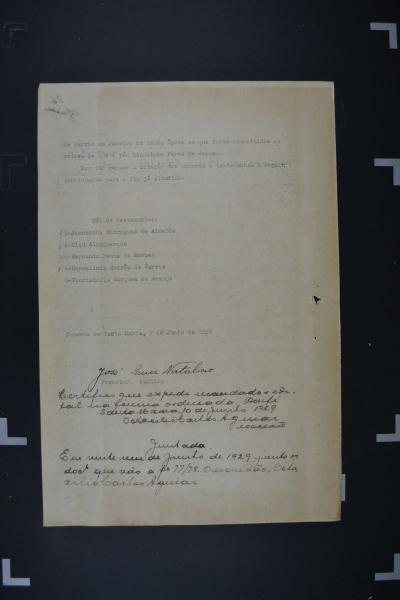 76
de Barros em Janeiro de 1929, época em que foram commettidos os
crimes de que é réu Lindolpho Penna de Moraes.
Por fim requer a citação dos menores e testemunhas a seguir,
mencionadas para o fim já alludido.
Ról de testemunhas:
1-Joanninha Rodrigues de Almeida
2-Clau Albuquerque
3-Fernando Penna de Moraes
4-Hermelinda Corrêa de Barros
5-Floristella Marques de Araujo
Comarca de Santa Maria, 7 de Junho de 1929
José Luiz Natalicio
Promotor Publico
Certifico que expedi mandado e edi-
tal na forma ordenada. Dou fé
Santa Maria, 10 de junho 1929
Octacilio Carlos Aguiar
escrivão
Juntada
Em vinte um de Junho de 1929 junto os
docs que vão a fs 77/78. O escrivão, Octa
cilio Carlos Aguiar